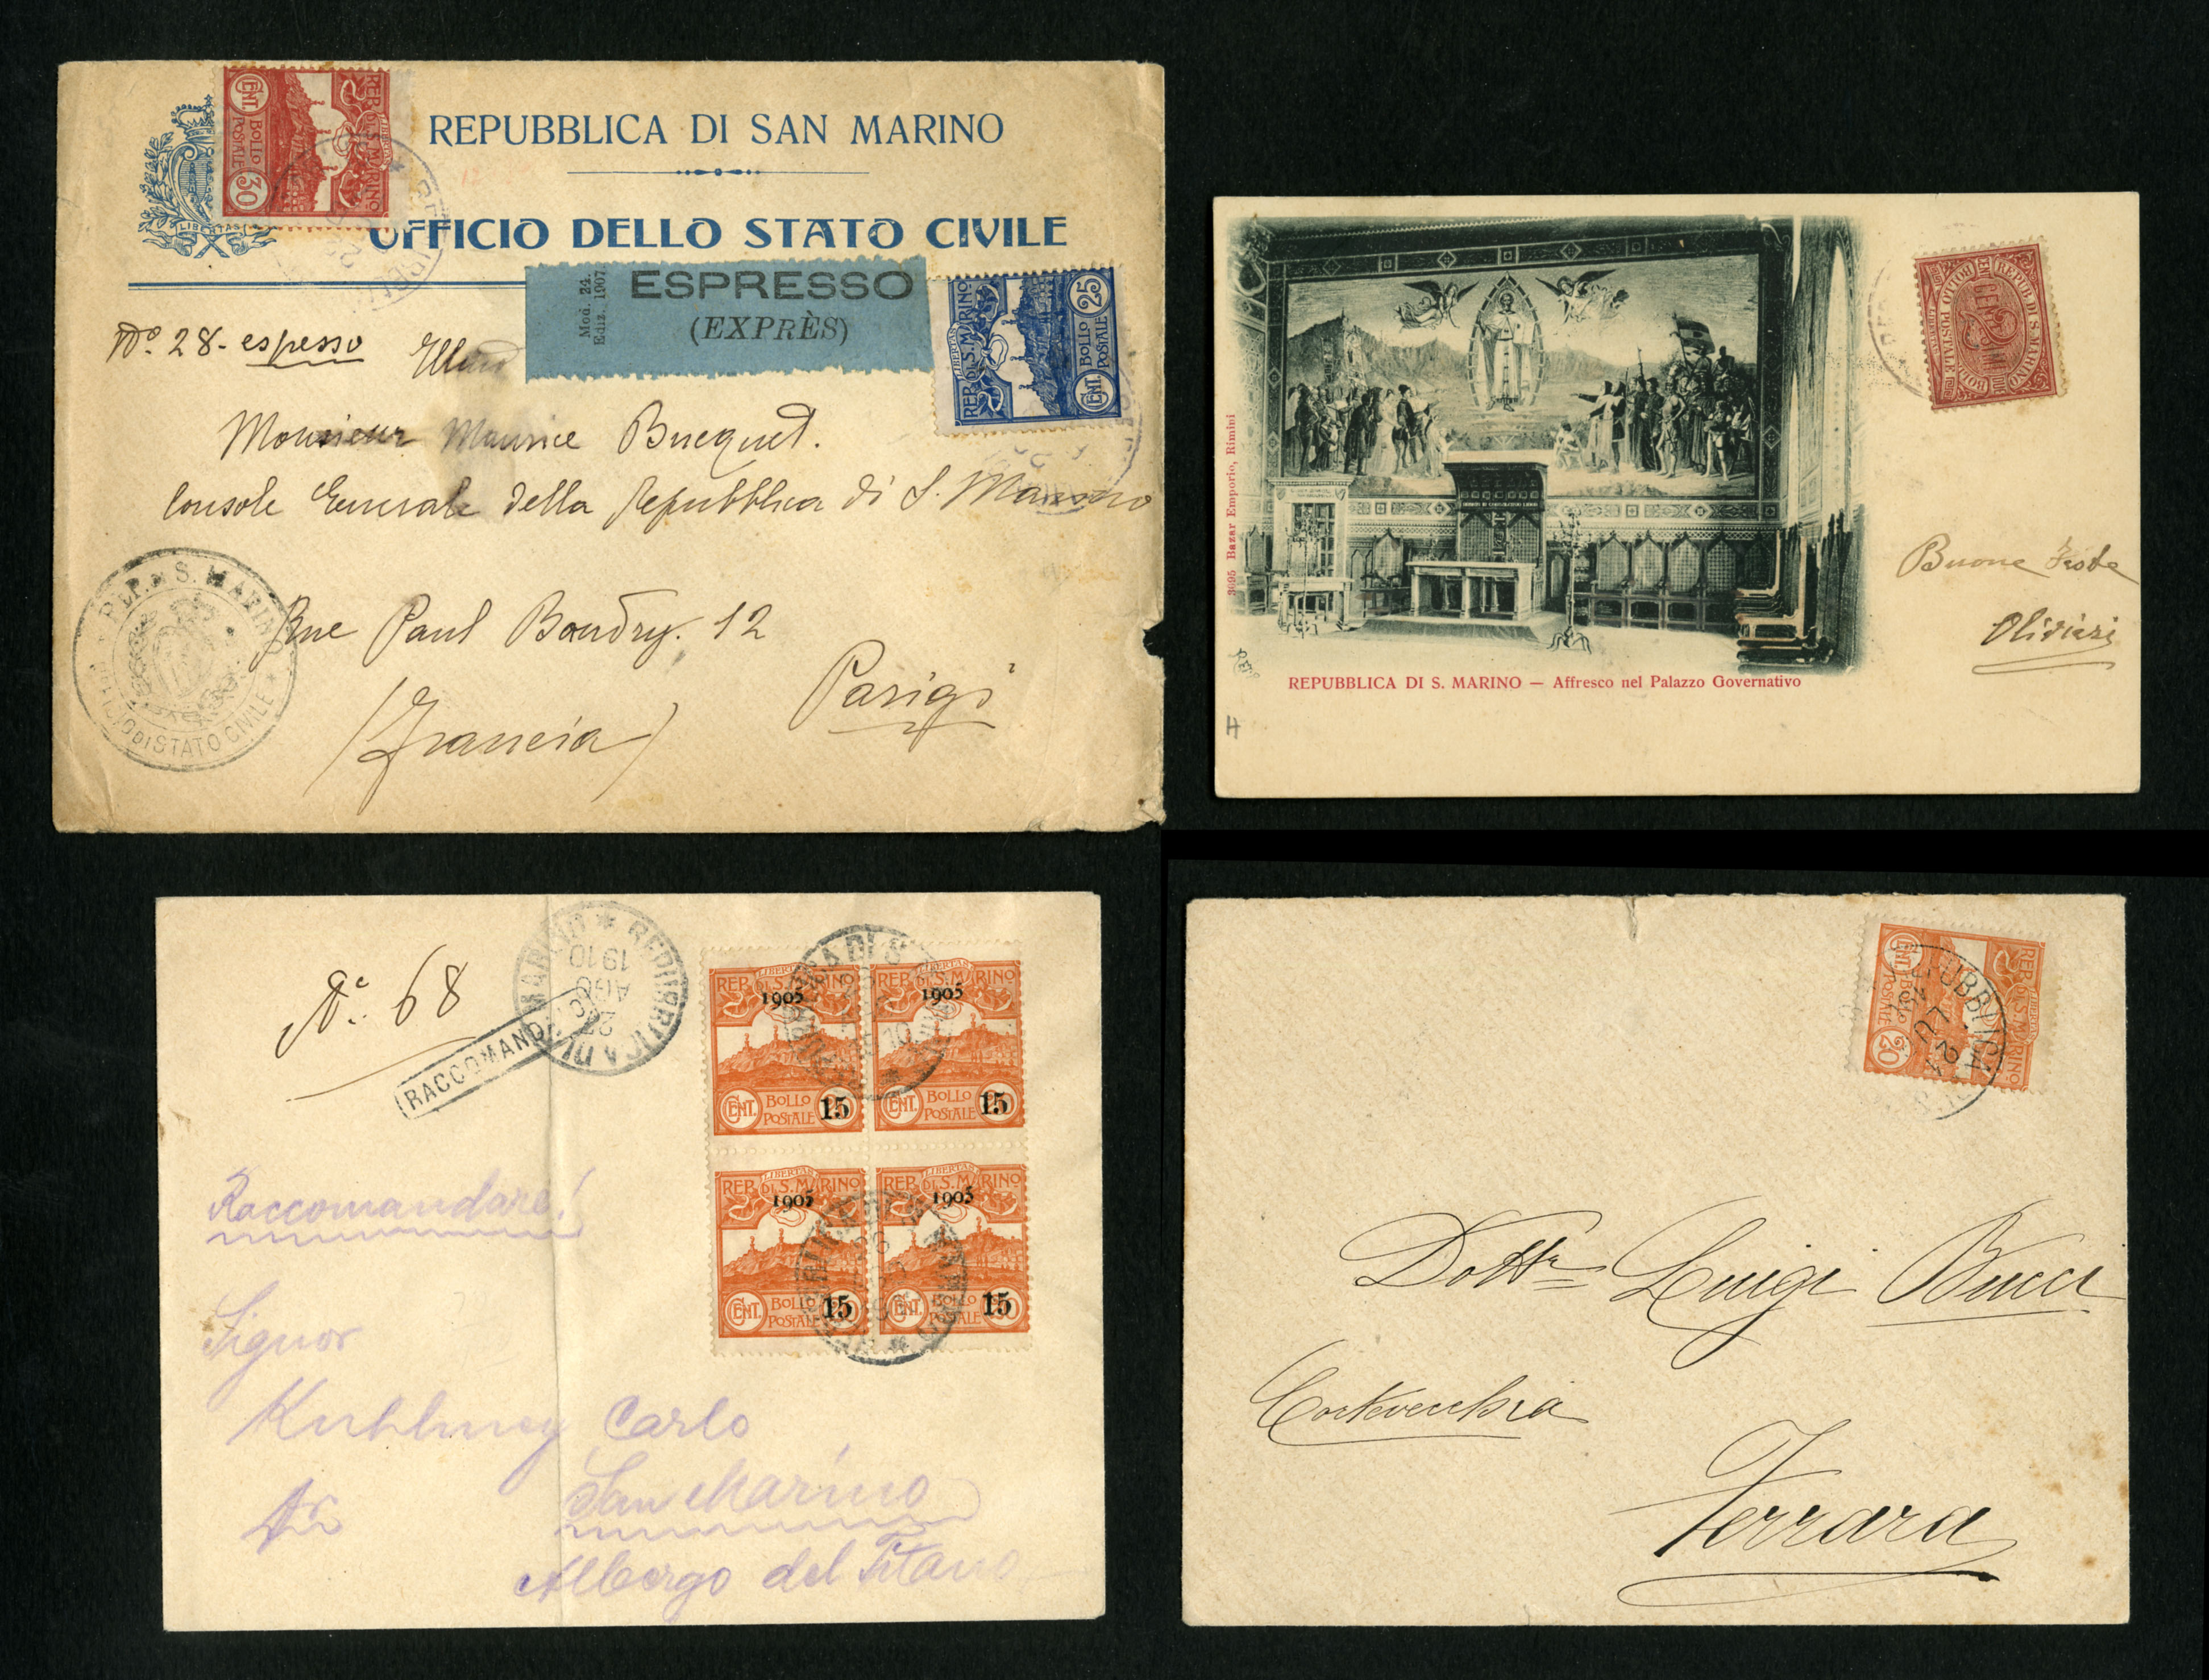 REPUBBLICA DI SAN MARINO
UFFICIO DELLO STATO CIVILE
LIBERTAS
REP. DI S. MARINO
LIBERTAS
CENT. BOLLO POSTALE 30
Mod. 24.
Ediz. 1907.
ESPRESSO
(EXPRÈS)
LIBERTAS
REP. DI S. MARINO
CENT. BOLLO POSTALE 25
No. 28 - espresso
Monsieur Maurice Bucquet.
Console Generale della Repubblica di S. Marino
Rue Paul Boudry. 12
Parigi
(Francia)
REP. DI S. MARINO
UFFICIO DI STATO CIVILE
REPUB. DI S. MARINO
CENT. 2
BOLLO POSTALE
3695 Bazar Emporio, Rimini
Buone Feste
Olivieri
REPUBBLICA DI S. MARINO — Affresco nel Palazzo Governativo
H
No. 68
RACCOMAND
REPUBBLICA DI S. MARINO
27 AGO 1910
LIBERTAS
REP. DI S. MARINO
1905
CENT. BOLLO POSTALE 15
LIBERTAS
REP. DI S. MARINO
1905
CENT. BOLLO POSTALE 15
LIBERTAS
REP. DI S. MARINO
1905
CENT. BOLLO POSTALE 15
LIBERTAS
REP. DI S. MARINO
1905
CENT. BOLLO POSTALE 15
Raccomandare!
Signor
Kuhlmey Carlo
San Marino
Albergo del Titano
REP. DI S. MARINO
LIBERTAS
CENT. BOLLO POSTALE 20
REPUBBLICA
Dottr Luigi Bucci
Cortevecchia
Ferrara